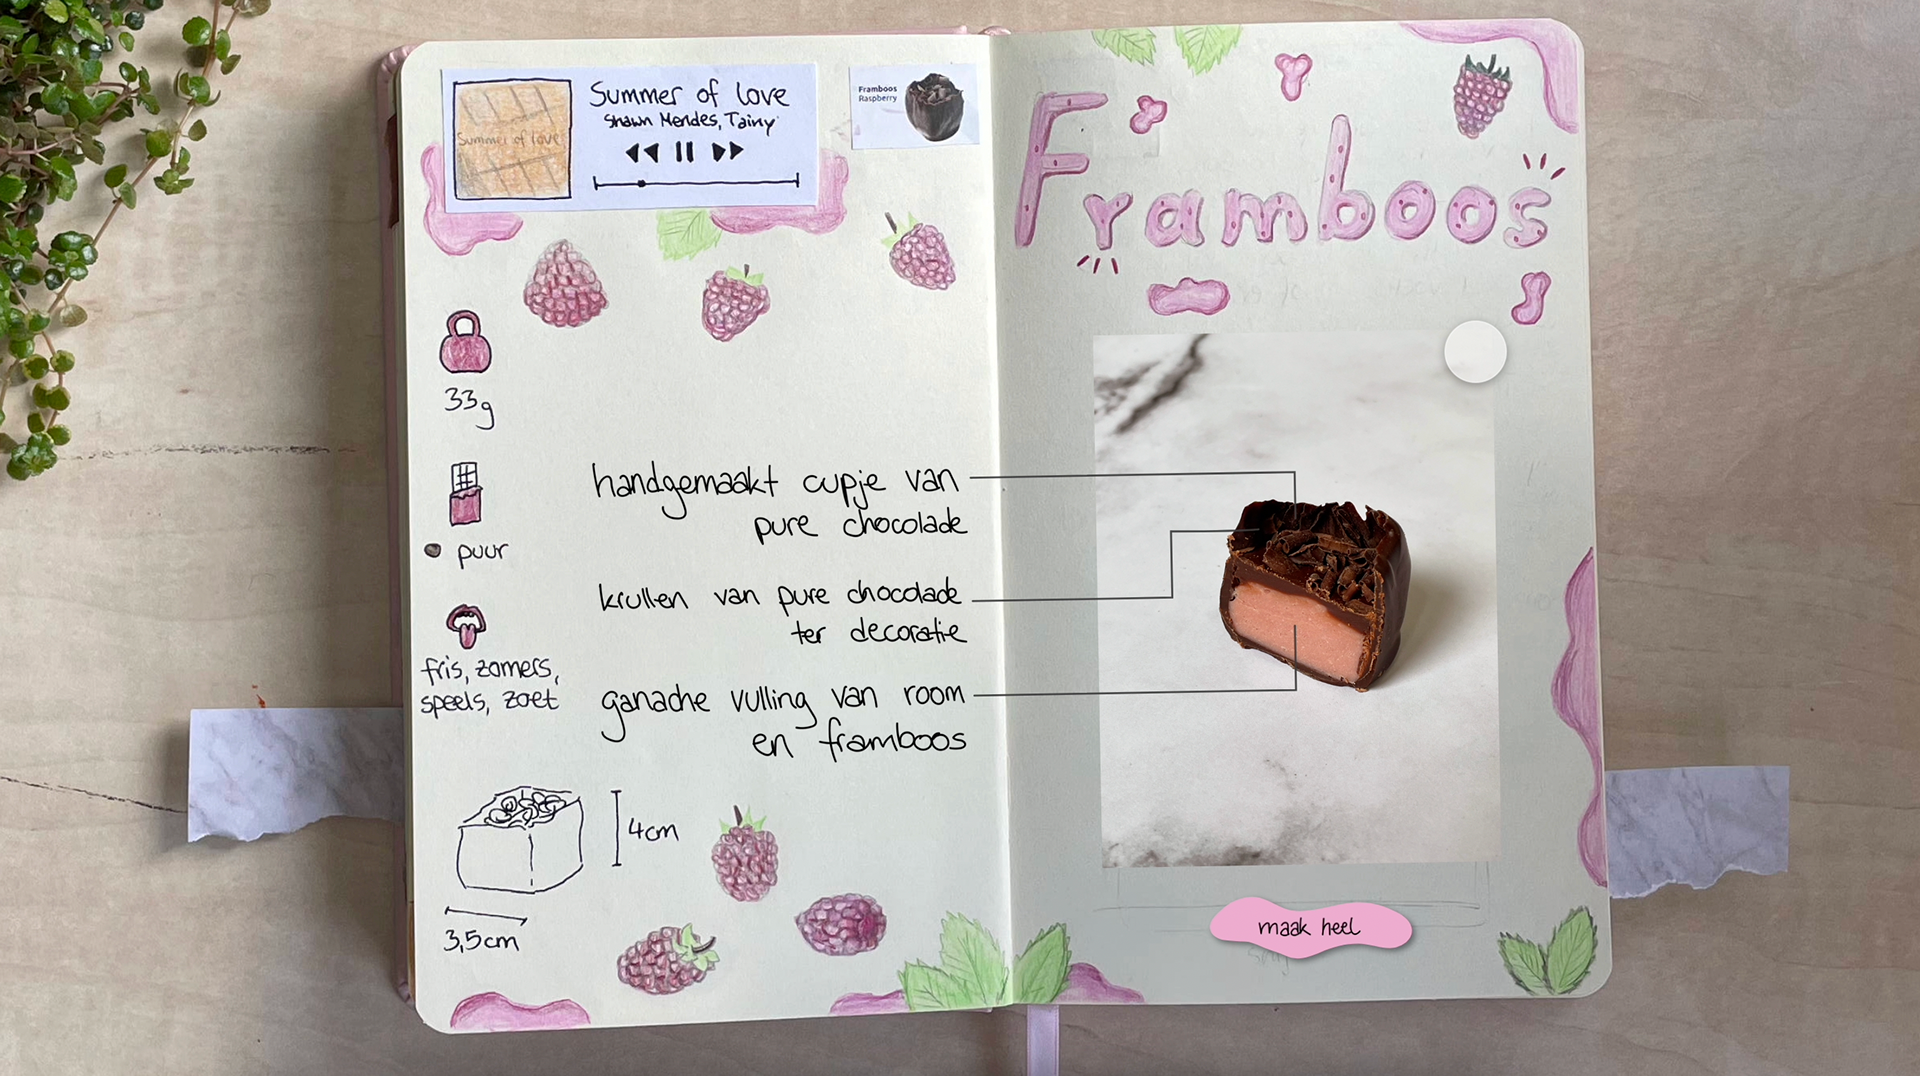 Summer of love
Summer of love
Shawn Mendes, Tainy
Framboos
Raspberry
Framboos
33g
puur
fris, zomers,
speels, zoet
handgemaakt cupje van
pure chocolade
krullen van pure chocolade
ter decoratie
ganache vulling van room
en framboos
4cm
3,5cm
maak heel